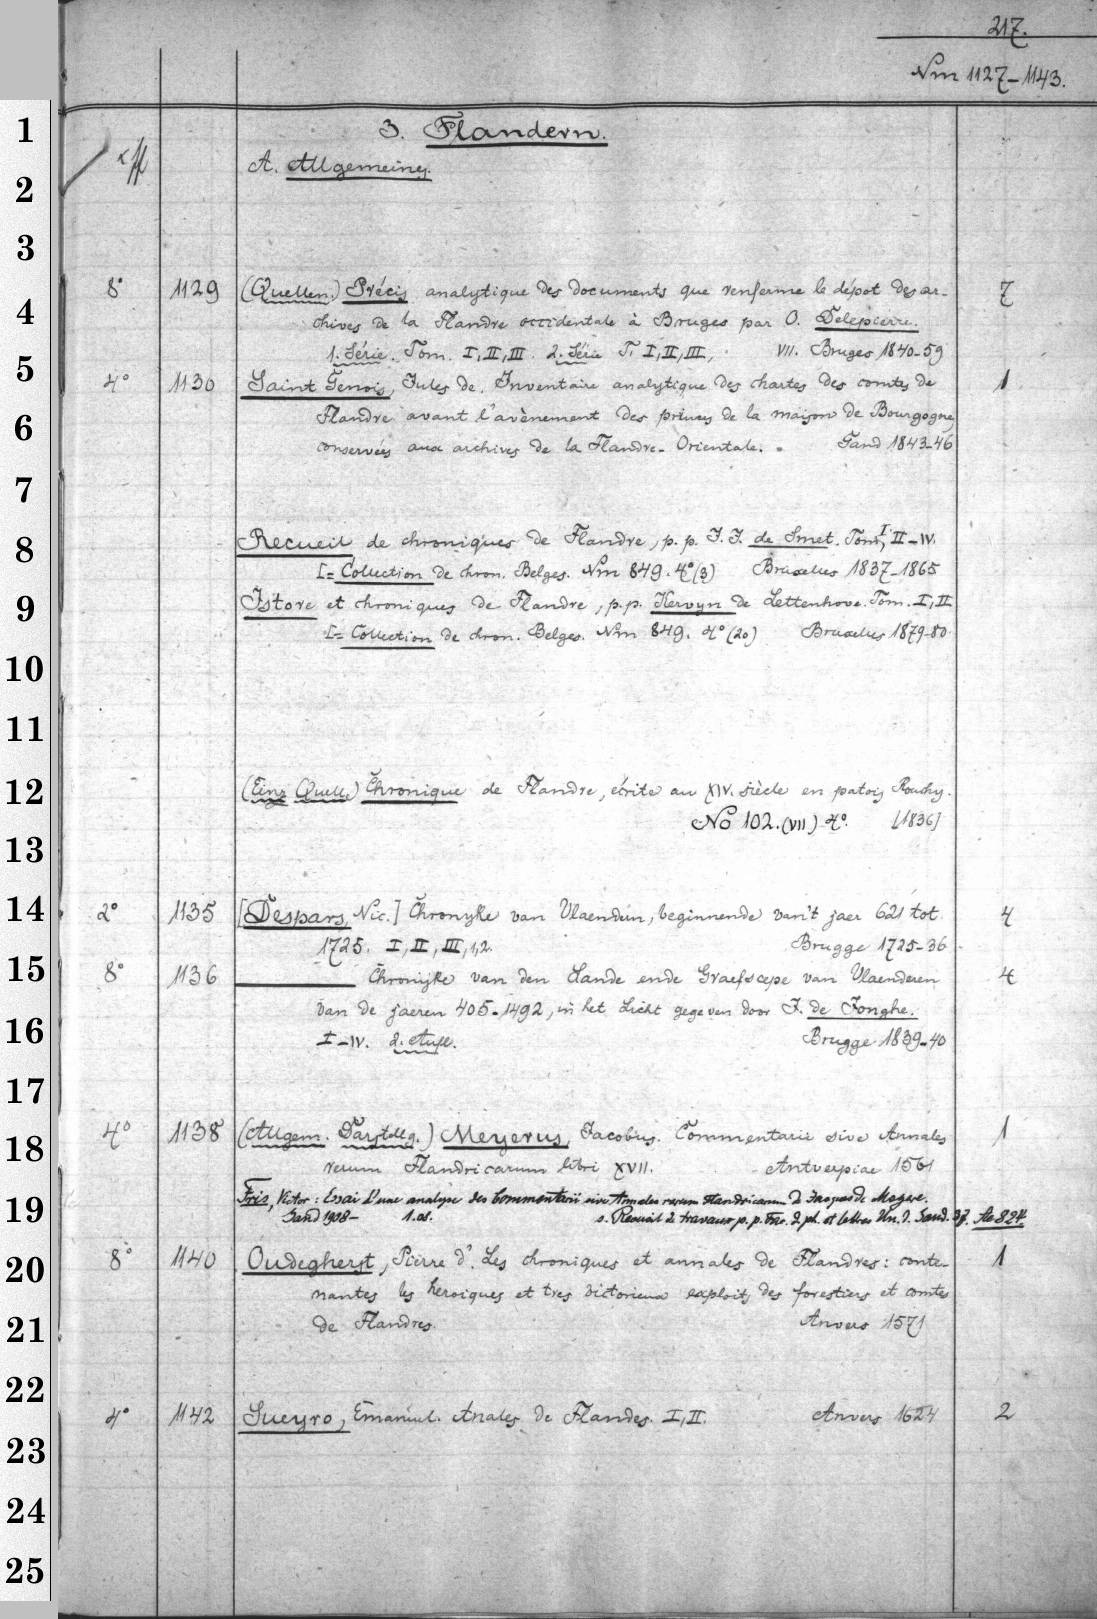 217.
Nm 1127-1143.
1
3. Flandern.
A. Allgemeines.
2
3
8° 1129 (Quellen.) Précis analytique des documents que renferme le dépot des ar- 7
4
chives de la Flandre occidentale à Bruges par O. Delepierre.
1. Série. Tom. I, II, III. 2. Série T. I, II, III, VII. Bruges 1840-59
5
4° 1130 Saint Genois, Jules de. Inventaire analytique des chartes des comtes de 1
Flandre avant l'avènement des princes de la maison de Bourgogne,
6
conservées aux archives de la Flandre-Orientale. Gand 1843-46
7
8
Recueil de chroniques de Flandre, p. p. J. J. de Smet. Tom. I, II-IV.
[= Collection de chron. Belges. Nm 849. 4° (3) Bruxelles 1837-1865
9
Istore et chroniques de Flandre, p. p. Kervyn de Lettenhove. Tom. I, II
[= Collection de chron. Belges. Nm 849. 4° (20) Bruxelles 1879-80.
10
11
12
(Einz Quelle.) Chronique de Flandre, écrite au XIV. siècle en patois Rouchy.
No 102. (VII) 4°. [1836]
13
14
2° 1135 [Despars, Nic.] Chronyke van Vlaenderen, beginnende van't jaer 621 tot 4
1725. I, II, III, 1,2. Brugge 1725-36
15
8° 1136 Chronijke van den Lande ende Graefscepe van Vlaenderen 4
van de jaeren 405-1492, in het Licht gegeven door J. de Jonghe.
16
I-IV. 2. Aufl. Brugge 1839-40
17
4° 1138 (Allgem. Darstellg.) Meyerus, Jacobus. Commentarii sive Annales 1
18
rerum Flandricarum libri XVII. Antverpiae 1561
19
Fris, Victor: Essai d'une analyse des Commentarii sive Annales rerum Flandricarum d Jacques de Meyere.
Gand 1908- s. Recueil d travaux p. p. Fac. d ph. et lettres Un. d. Gand. 37.
20
8° 1140 Oudegherst, Pierre d'. Les chroniques et annales de Flandres: conte- 1
nantes les heroiques et tres victorieux exploits des forestiers et comtes
21
de Flandres. Anvers 1571
22
4° 1142 Sueyro, Emanuel. Anales de Flandes. I, II. Anvers 1624 2
23
24
25